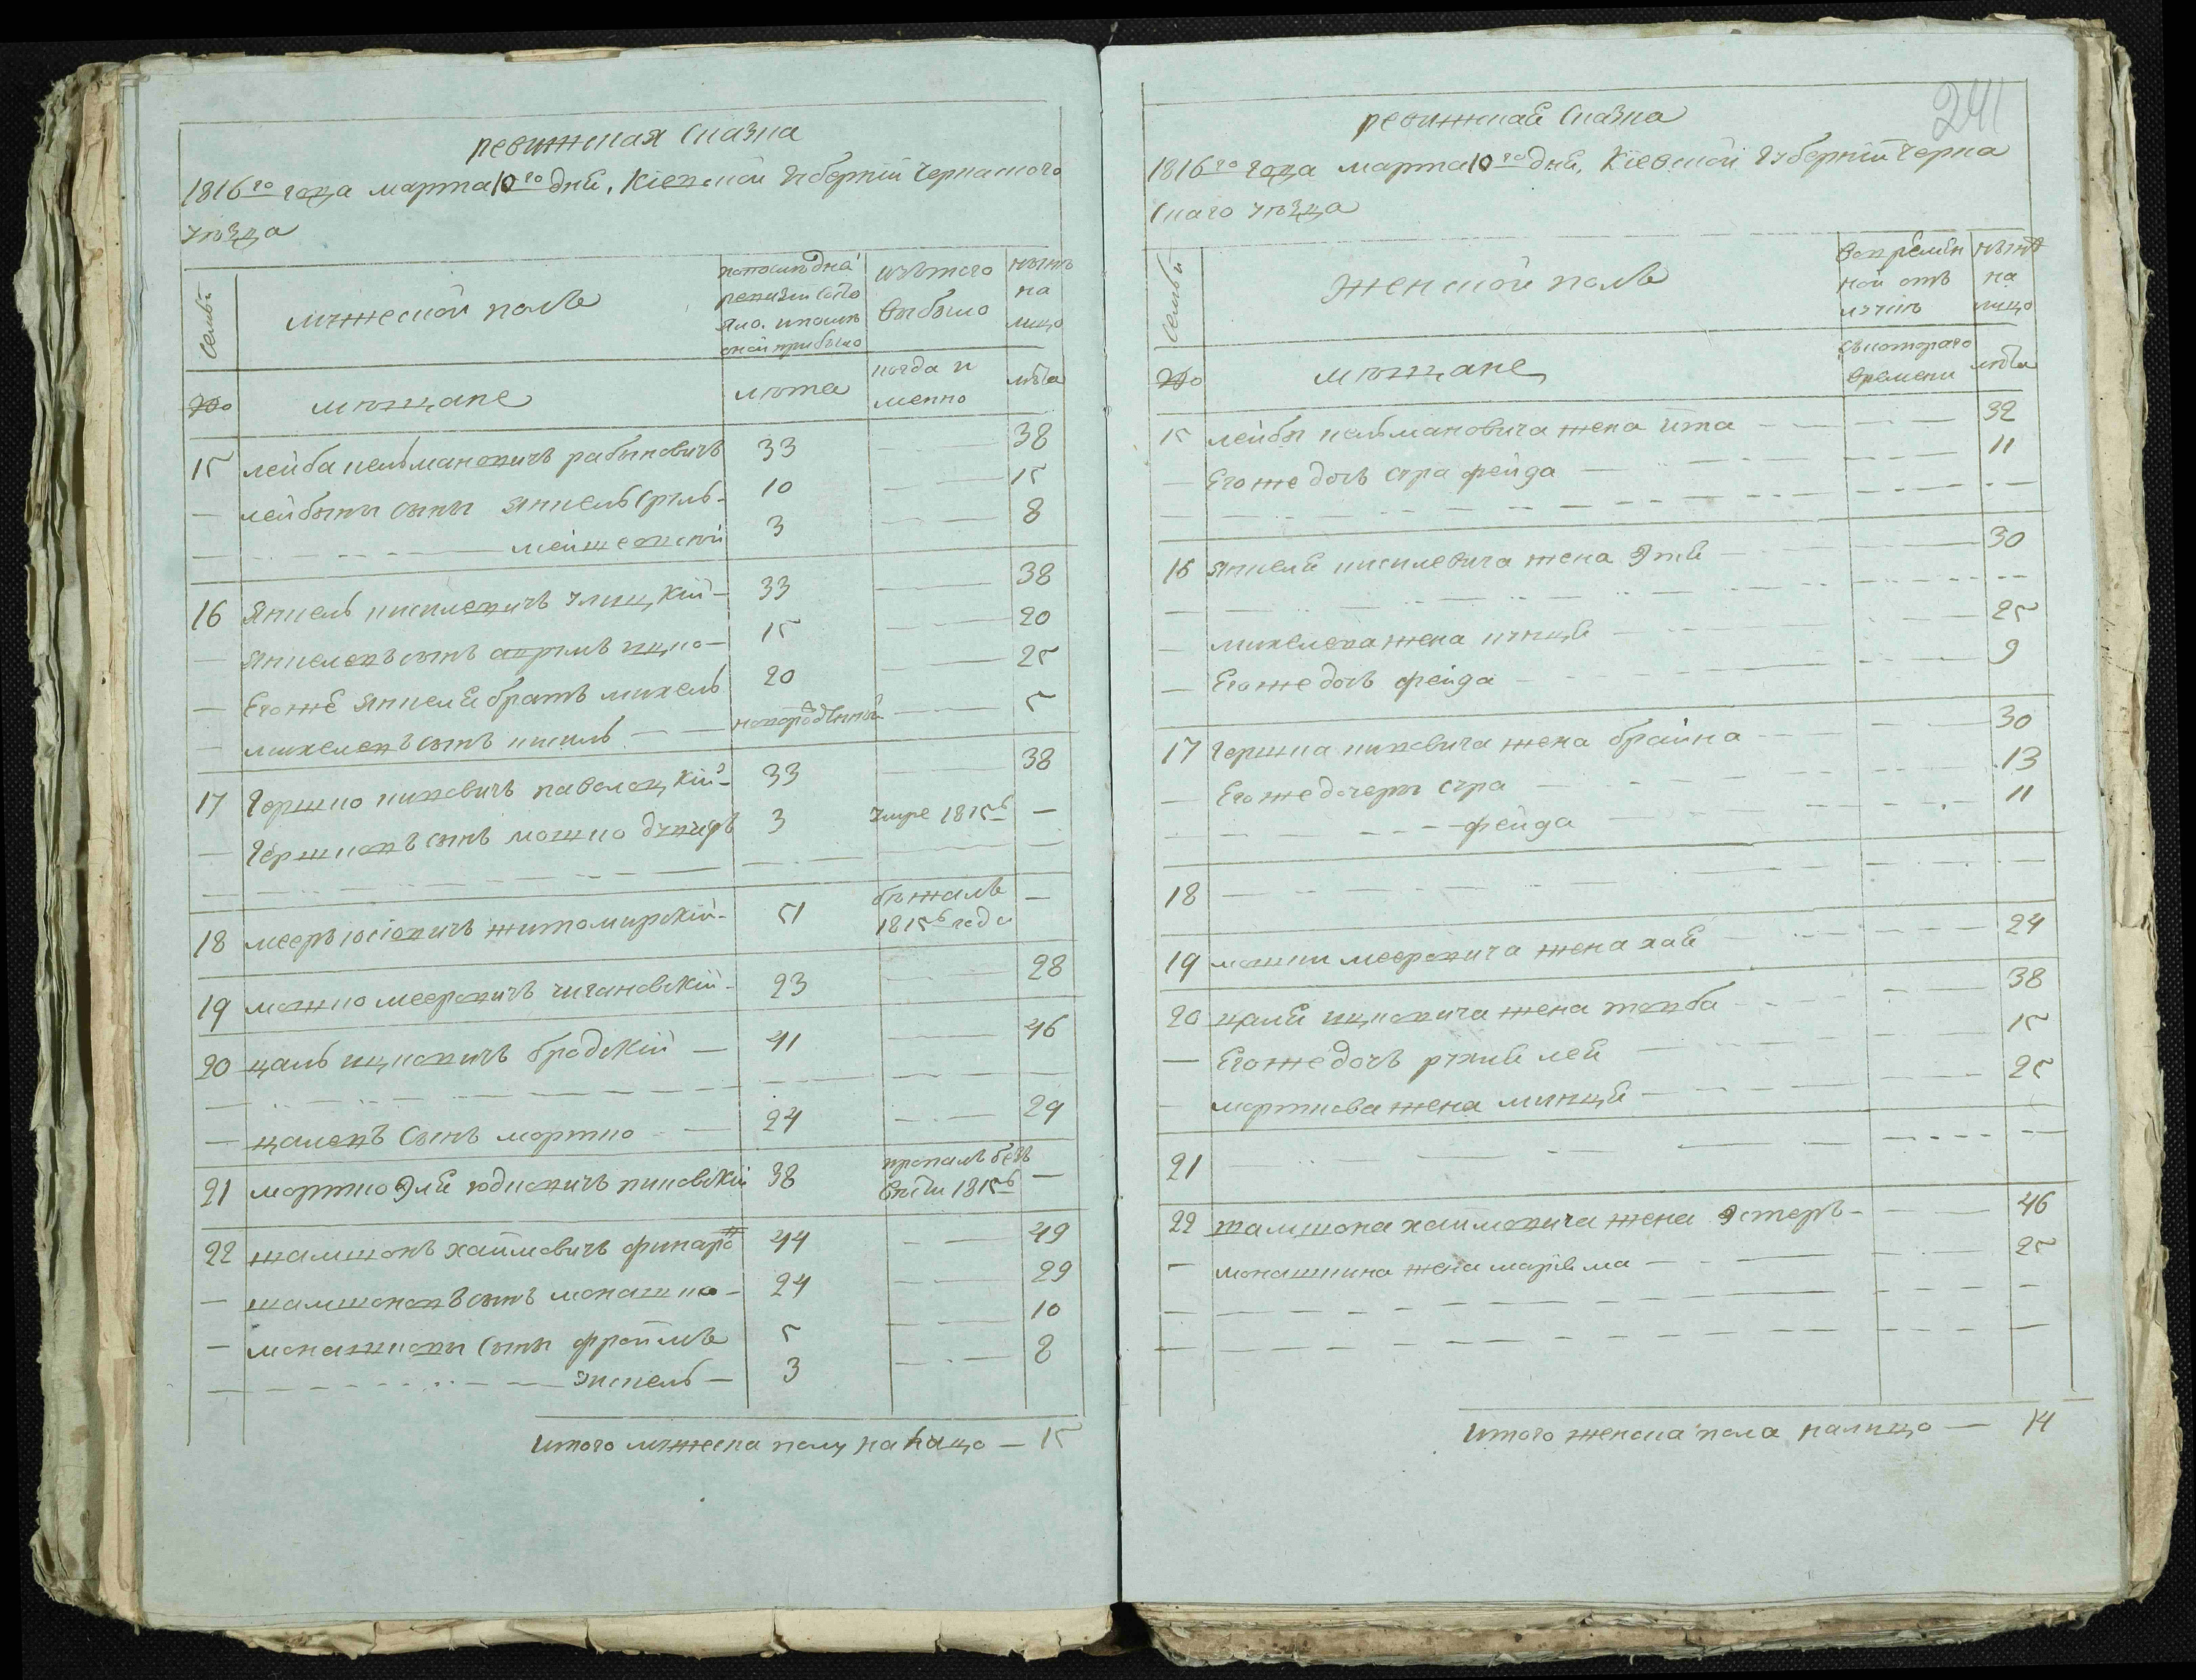 ревижская сказка
1816го года марта 10го дня, Кіевской губерніи Черкаского
уѣзда
Семьи
мужеской полъ
по последна
ревизіи состо
яло. и после
оной прибыло
изъ того
выбыло
нынѣ
на
лицо
№
мѣщане
лѣта
когда и
менно
лѣта
15 лейба кельмановичъ рабиновичъ 33 — 38
— лейбины сыны янкель сруль 10 — 15
— мейшевский 3 — 8
16 янкель кисилевичъ улицкій 33 — 38
— янкелевъ сынъ аврумъ ицко 15 — 20
— Егоже янкеля братъ михель 20 — 25
— михелевъ сынъ кисиль — новорожденный — 5
17 Гершко пинковичъ паволоцкій 33 — 38
— Гершковъ сынъ мошко дувидъ 3 умре 1815 —
18 мееръ іосіовичъ житомирскій 51 бежалъ 1815 года —
19 мошко мееровичъ чигановскій 23 — 28
20 цаль ицковичъ бродскій — 41 — 46
— цалевъ сынъ мортко — 24 — 29
21 мортко эля юдковичъ пиковскій 38 пропалъ безъ вести 1815 —
22 шамшонъ хаймовичъ финаро 44 — 49
— шамшоновъ сынъ монашко 24 — 29
— монашковы сыны фроимъ 5 — 10
— эискель — 3 — 8
Итого мужеска полу на лицо — 15
241
ревижская сказка
1816го года марта 10го дня, Кіевской губерніи Черка
скаго уѣзда
Семьи
женской полъ
во времен
ной отъ
лучкѣ
нынѣ
на
лицо
№
мѣщане
съ котораго
времени
лѣта
15 лейбы кельмановича жена ита — 32
— Егоже дочь сура фейга — 11
16 янкеля кисилевича жена Этя — 30
— михелева жена кунця — 25
— Егоже дочь фейга — 9
17 Гершка пинковича жена брайна — 30
— Егоже дочеры сура — 13
— фейга — 11
18
19 мошки мееровича жена хая — 24
20 цаля ицковича жена товба — 38
— Егоже дочь рухля лея — 15
— морткова жена минця — 25
21
22 шамшона хаимовича жена эстеръ — 46
— монашкина жена маріяма — 25
Итого женска пола налицо — 14